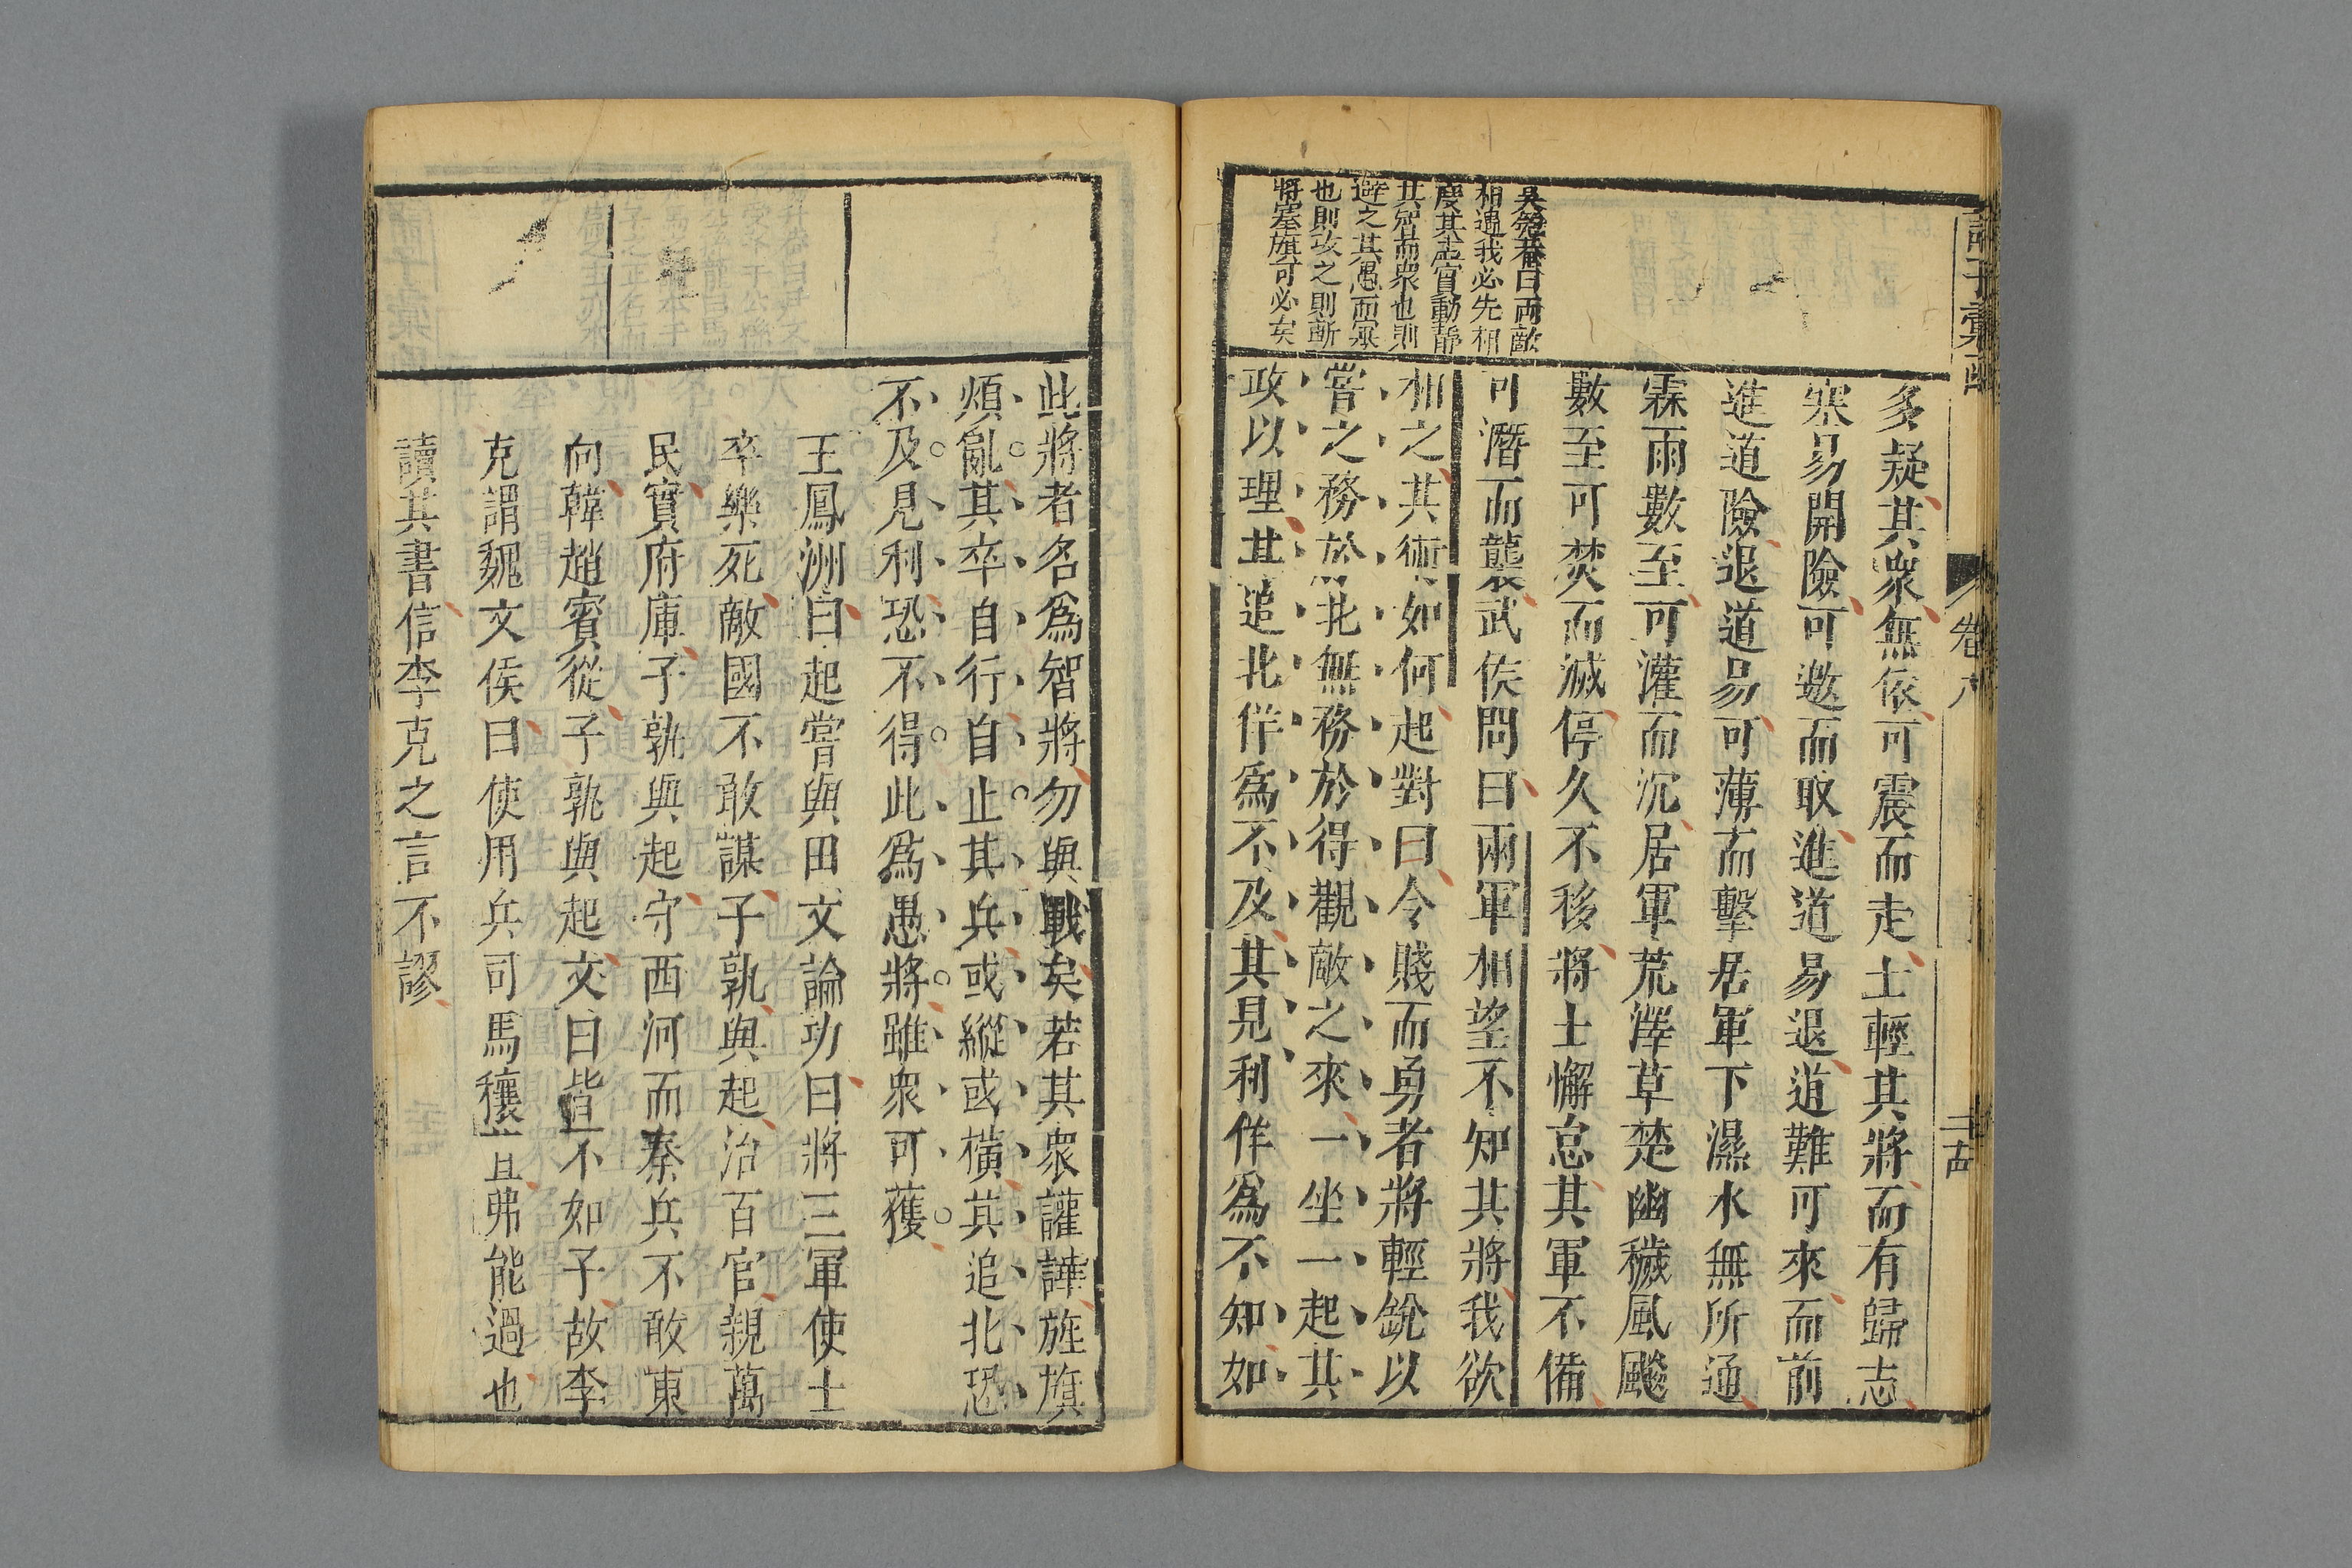 吳匏菴曰兩敵
相遇我必先相
度其虛實動靜
其智而衆也則
避之其愚而寡
也則攻之則斬
將搴旗可必矣
多疑其衆無依可震而走士輕其將而有歸志
塞易開險可邀而取進道易退道難可來而前
進道險退道易可薄而擊居軍下濕水無所通
霖雨數至可灌而沉居軍荒澤草楚幽穢風飈
數至可焚而滅停久不移將士懈怠其軍不備
可潛而襲武侯問曰兩軍相望不知其將我欲
相之其術如何起對曰令賤而勇者將輕銳以
嘗之務於北無務於得觀敵之來一坐一起其
政以理其追北佯爲不及其見利佯爲不知如
卷六
此將者名爲智將勿與戰矣若其衆讙譁旌旗
煩亂其卒自行自止其兵或縱或橫其追北恐
不及見利恐不得此爲愚將雖衆可獲
王鳳洲曰起嘗與田文論功曰將三軍使士
卒樂死敵國不敢謀子孰與起治百官親萬
民實府庫子孰與起守西河而秦兵不敢東
向韓趙賓從子孰與起文曰皆不如子故李
克謂魏文侯曰使用兵司馬穰苴弗能過也
讀其書信李克之言不謬